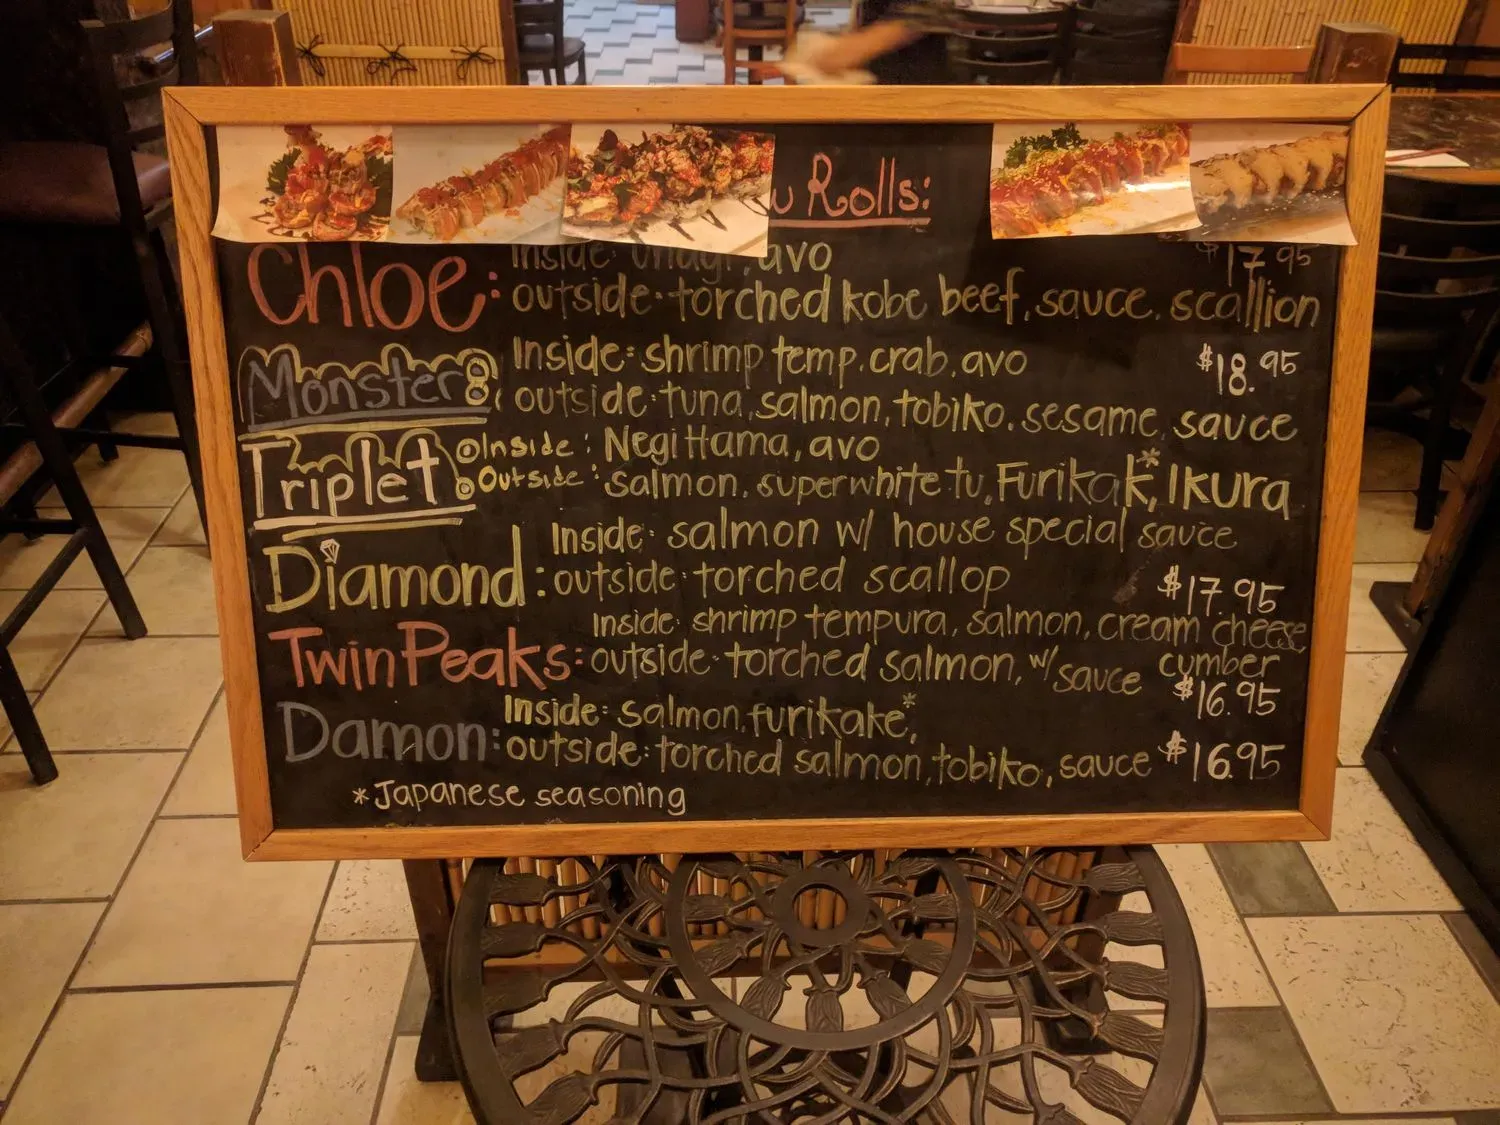 Rolls:
Chloe: Inside: unagi, avo $17.95
outside: torched kobe beef, sauce, scallion
Monster: Inside: shrimp temp. crab, avo $18.95
outside: tuna, salmon, tobiko, sesame, sauce
Triplet Inside: Negi Hama, avo
Outside: salmon, superwhite tu, Furikak*, Ikura
Diamond: Inside: salmon w/ house special sauce
outside: torched scallop $17.95
Twin Peaks: Inside: shrimp tempura, salmon, cream cheese
outside: torched salmon, w/ sauce cumber
$16.95
Damon: Inside: salmon, furikake*,
outside: torched salmon, tobiko, sauce $16.95
*Japanese seasoning